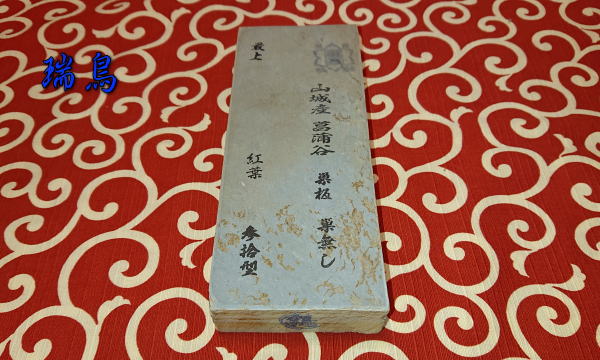 瑞鳥
最上
山城産 菖蒲谷 巣板 巣無し
紅葉
参拾型